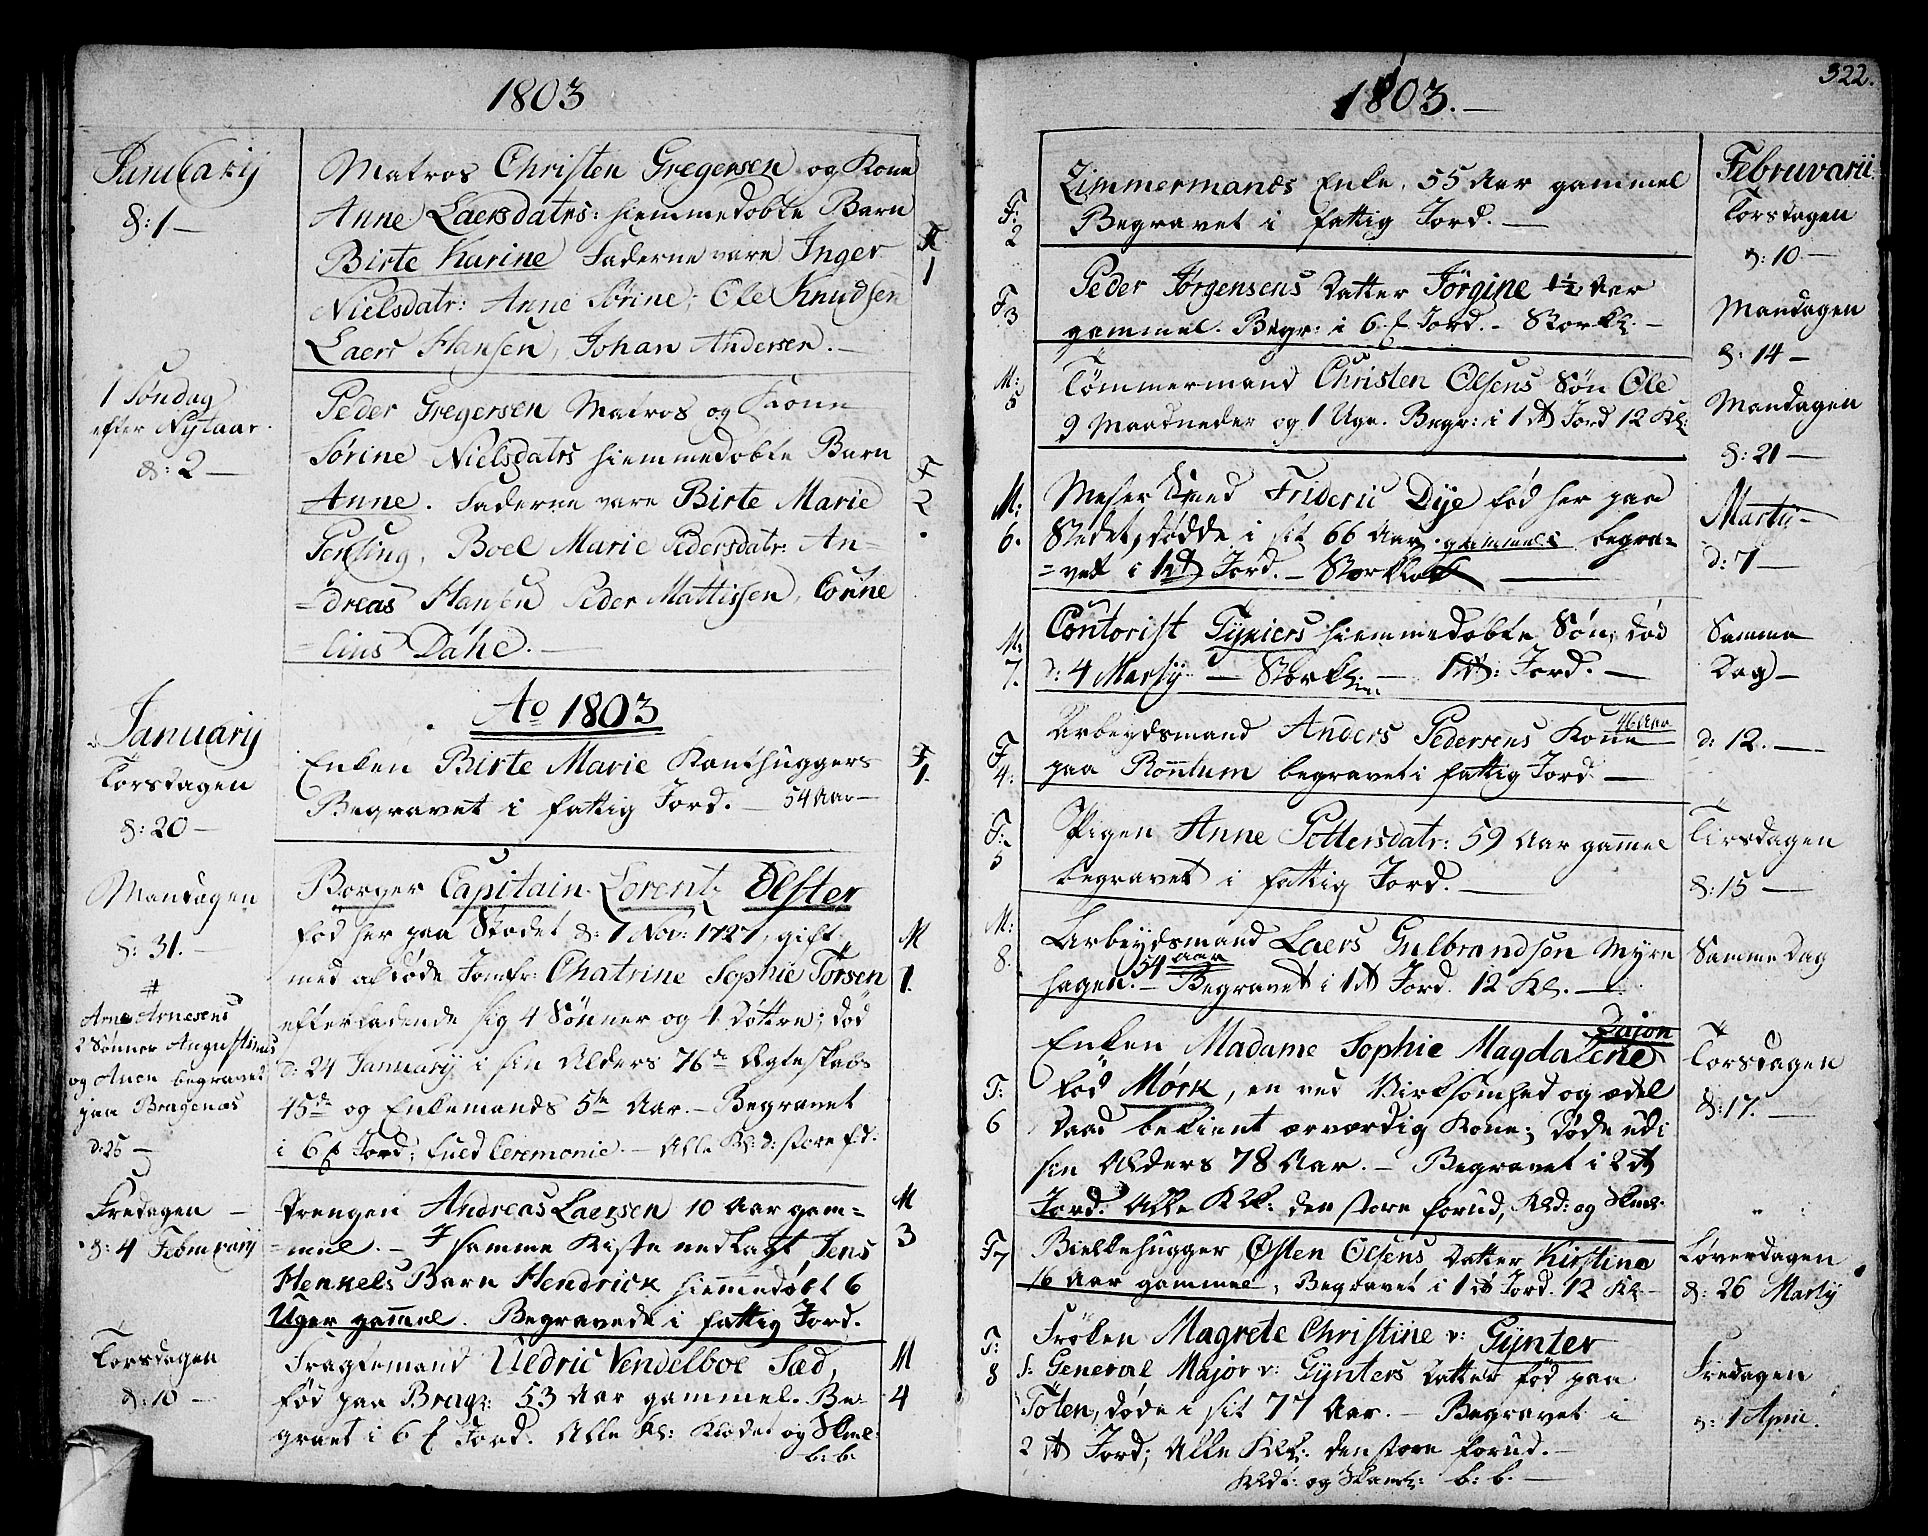 1803
Januarij
d: 1 —
Matros Christen Gregersen og Kone
Anne Laersdatrs: hiemmedøbte Barn
Birte Karine Faderne vare Inger
Nielsdatr: Anne Sørine; Ole Knudsen
Laers Hansen, Johan Andersen. —
F
1
1 Søndag
efter Nytaar.
d: 2 —
Peder Gregersen Matros og Kone
Sørine Nielsdatrs hiemmedøbte Barn
Anne. Faderne vare Birte Marie
Boel Marie Pedersdatr: An=
=dreas Hansen, Peder Mattissen, Corne
=lius Dahe. —
F
2
Ao 1803
Januarij
Torsdagen
d: 20 —
Enken Birte Marie Kanthuggers
Begravet i fattig Jord. — 54 Aar —
F
1.
Mandagen
d: 31. —
Borger Capitain Lorentz Olster
fød her paa Stædet d: 7 Nov: 1727, gift
med afdøde Jomfr: Chatrine Sophie Torsen
efterladende sig 4 Sønner og 4 Døttre; død
d: 24 January i sin Alders 76de Ægteskabs
45de og Enkemands 5te Aar. — Begravet
i 6 f Jord; Ceremonie. — Alle Kl: d: store f.d:
M
1.
#
Arne Arnesens
2 Sønner Angustinus
og Anen begravet
paa Bragenæs
d: 25 —
Fredagen —
d: 4 Februarij
Drengen Andreas Laersen 10 Aar gam=
=mel. — I samme Kiste nedlagt Jens
Henkels Barn Hendrick hiemmedøbt 6
Uger gammel. Begravede i fattig Jord.
M
3
Torsdagen
d: 10 —
Fragtemand Uldric Vendelboe Sæd,
fød paa Bragn: 53 Aar gammel. Be
gravet i 6 f Jord. Alle Kl: Klædet og Skml:
b: b.
M
4
1803. —
322.
Februarii
Torsdagen
d: 10 —
F:
2
Zimmermands Enke, 55 Aar gammel
Begravet i fattig Jord. —
F
3
Peder Jørgensens Datter Jørgine 1½ Aar
gammel. Begr: i 6 f Jord. — Storkl. —
Mandagen
d: 14 —
M:
5
Tømmermand Christen Olsens Søn Ole
9 Maadneder og 1 Uge. Begr: i 1 rd Jord 12 Kl:
Mandagen
d: 21 —
M:
6.
Smed Frideric Dye fød her paa
Stedet, dødde i sit 66 Aar gammels begra=
=vet i 1 rd Jord. — Storklok —
Martij —
d: 7 —
M:
7.
Contorist Gyniers hiemmedøbte Søn, død
d: 4 Martij — Storkl: — 1 rd: Jord. —
Samme
Dag —
F
4:
Arbeydsmand Anders Pedersens Kone 46 Aar
paa Rønntum begravet i fattig Jord —
d: 12. —
F:
5
Pigen Anne Pottersdatr: 59 Aar gammel
begravet i fattig Jord. —
Tirsdagen
d: 15 —
M:
8.
Arbeydsmand Laers Gulbrandsen Myre
hagen. 54 Aar — Begravet i 1 rd Jord. 12 Kl. —
Samme Dag
F:
6
Enken Madame Sophie Magdalene Zajon
fød Mørk, en ved Virksomhed og ædel
Daad bekient ærværdig Kone; døde udi
sin Alders 78 Aar. — Begravet i 2 rd
Jord. Alle Klk: den store forud, Kld: og Skml:
Torsdagen
d: 17. —
F
7
Biellehugger Østen Olsens Datter Kirstine
16 Aar gammel, Begravet i 1 rd Jord. 12 Kl —
Løverdagen
d: 26 Martij
F:
8
Frøken Magrete Christine v: Gynter
S: General Major v: Gynters Datter fød paa
Toten, døde i sit 77 Aar. — Begravet i
2 rd Jord; Alle Klk: den store forud. —
Kldt: og Skaml: b: b. —
Fredagen
d: 1 Apri.